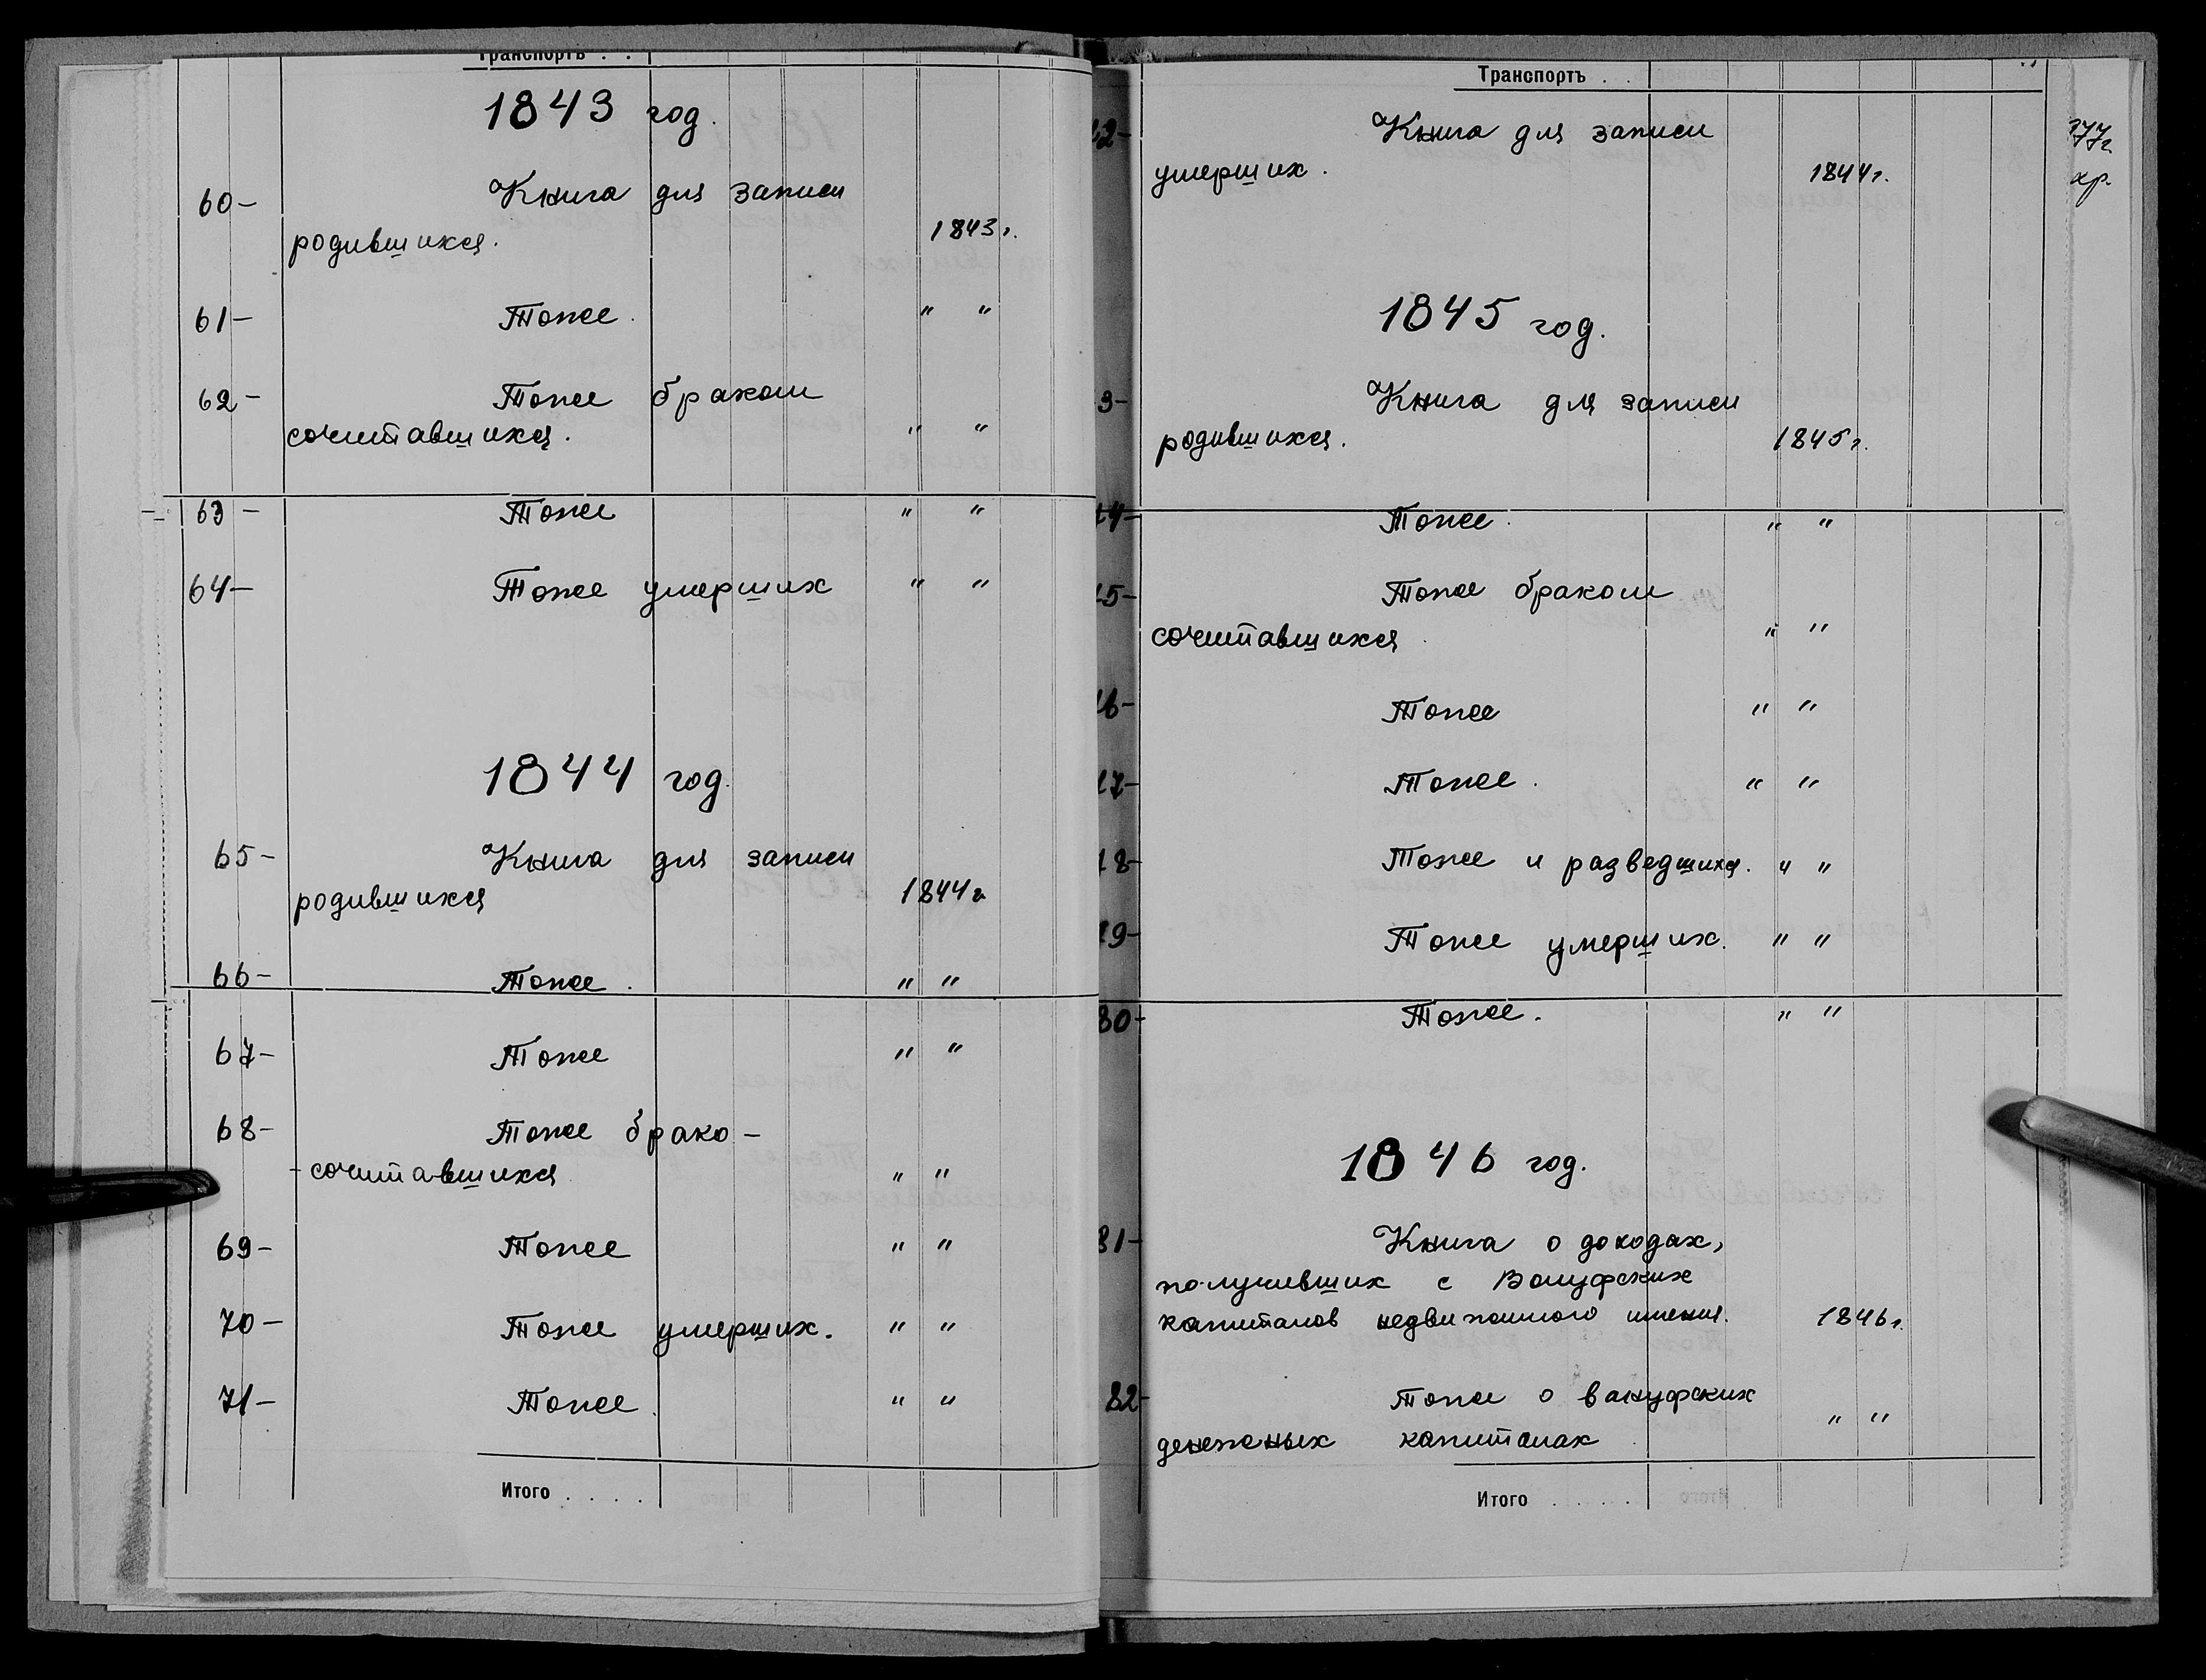 Транспортъ . .
1843 год.
60- Книга для записи
родившихся. 1843г.
61- Тоже. " "
62- Тоже браком
сочитавшихся. " "
63- Тоже " "
64- Тоже умерших " "
1844 год.
65- Книга для записи
родившихся 1844г
66- Тоже. " "
67- Тоже " "
68- Тоже брако-
-сочитавшихся " "
69- Тоже " "
70- Тоже умерших. " "
71- Тоже. " "
Итого . . . .
Транспортъ . .
2- Книга для записи
умерших. 1844г.
1845 год.
3- Книга для записи
родившихся. 1845г.
4- Тоже. " "
5- Тоже браком
сочитавшихся " "
6- Тоже " "
7- Тоже. " "
8- Тоже и разведшихся. " "
9- Тоже умерших. " "
80- Тоже. " "
1846 год.
81- Книга о доходах,
получивших с Вакуфских
капиталов недвижимого имения. 1846г.
82- Тоже о вакуфских
денежных капиталах " "
Итого . . . . .